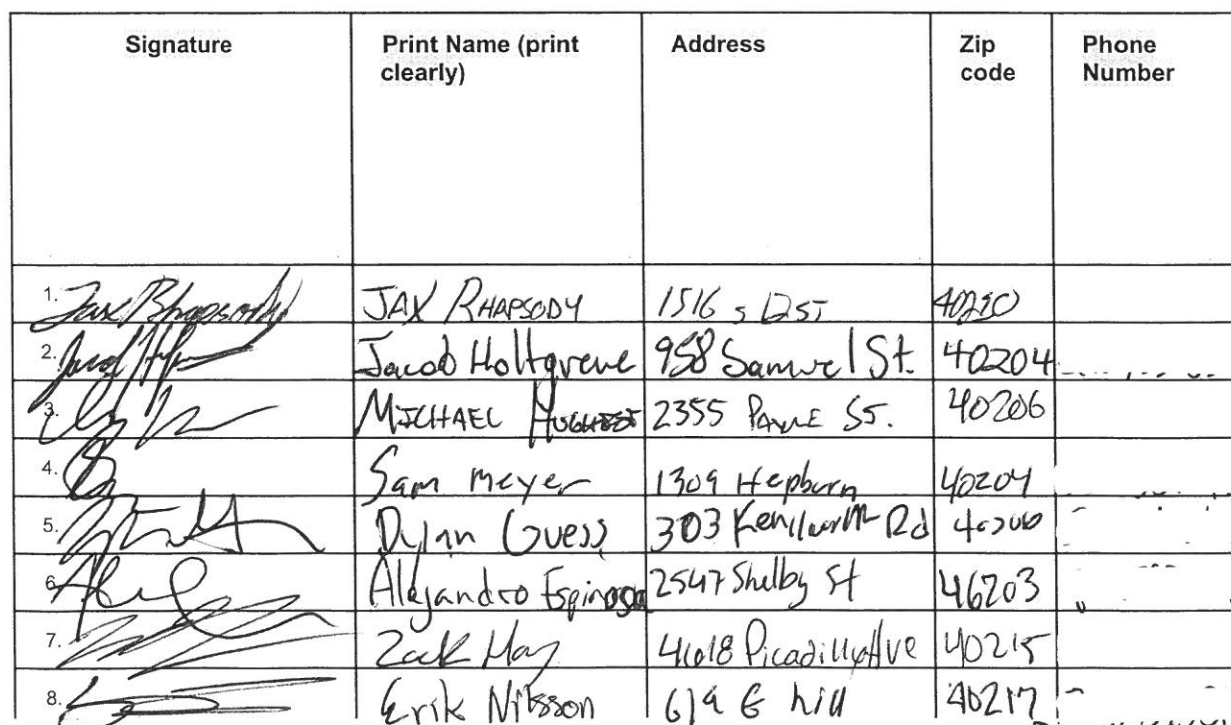 Signature Print Name (print clearly) Address Zip code Phone Number
1. Jax Rhapsody JAX RHAPSODY 1516 S 12 ST 40210
2. Jacob Holtgreve 958 Samuel St. 40204
3. MICHAEL HUGHES 2355 PAYNE ST. 40206
4. Sam Meyer 1309 Hepburn 40204
5. Dylan Guess 303 Kenilworth Rd 40206
6. Alejandro Espinosa 2547 Shelby St 46203
7. Zack May 4618 Picadilly Ave 40215
8. Erik Nilsson 619 E hill 40217